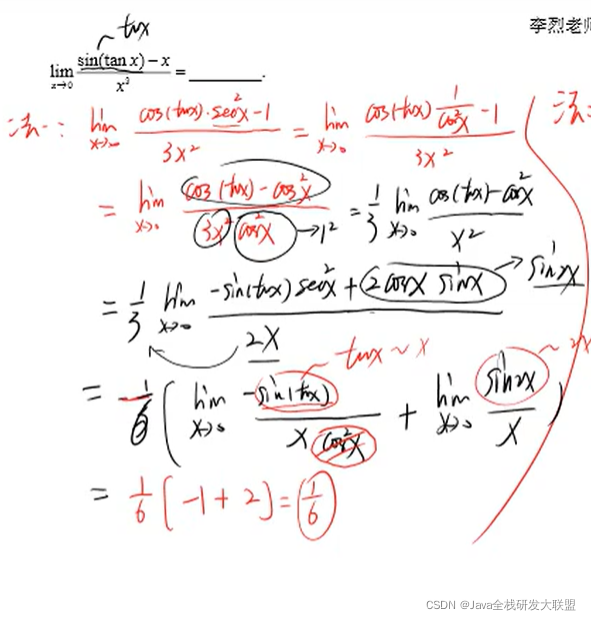 李烈老师
tanx
lim x→0 (sin(tan x) − x) / x³ = ______.
法一: lim x→∞ (cos(tanx)·sec²x−1) / 3x² = lim x→0 (cos(tanx) 1/cos²x −1) / 3x²
法
= lim x→0 (cos(tanx)−cos²x) / (3x² cos²x) →1² = 1/3 lim x→0 (cos(tanx)−cos²x) / x²
= 1/3 lim x→0 (−sin(tanx)sec²x + 2cosx sinx) / 2x → sin2x
tanx ~ x
~ 2x
= 1/6 ( lim x→0 −sin(tanx) / (x cos²x) + lim x→0 sin2x / x )
= 1/6 [−1+2] = 1/6
CSDN @Java全栈研发大联盟